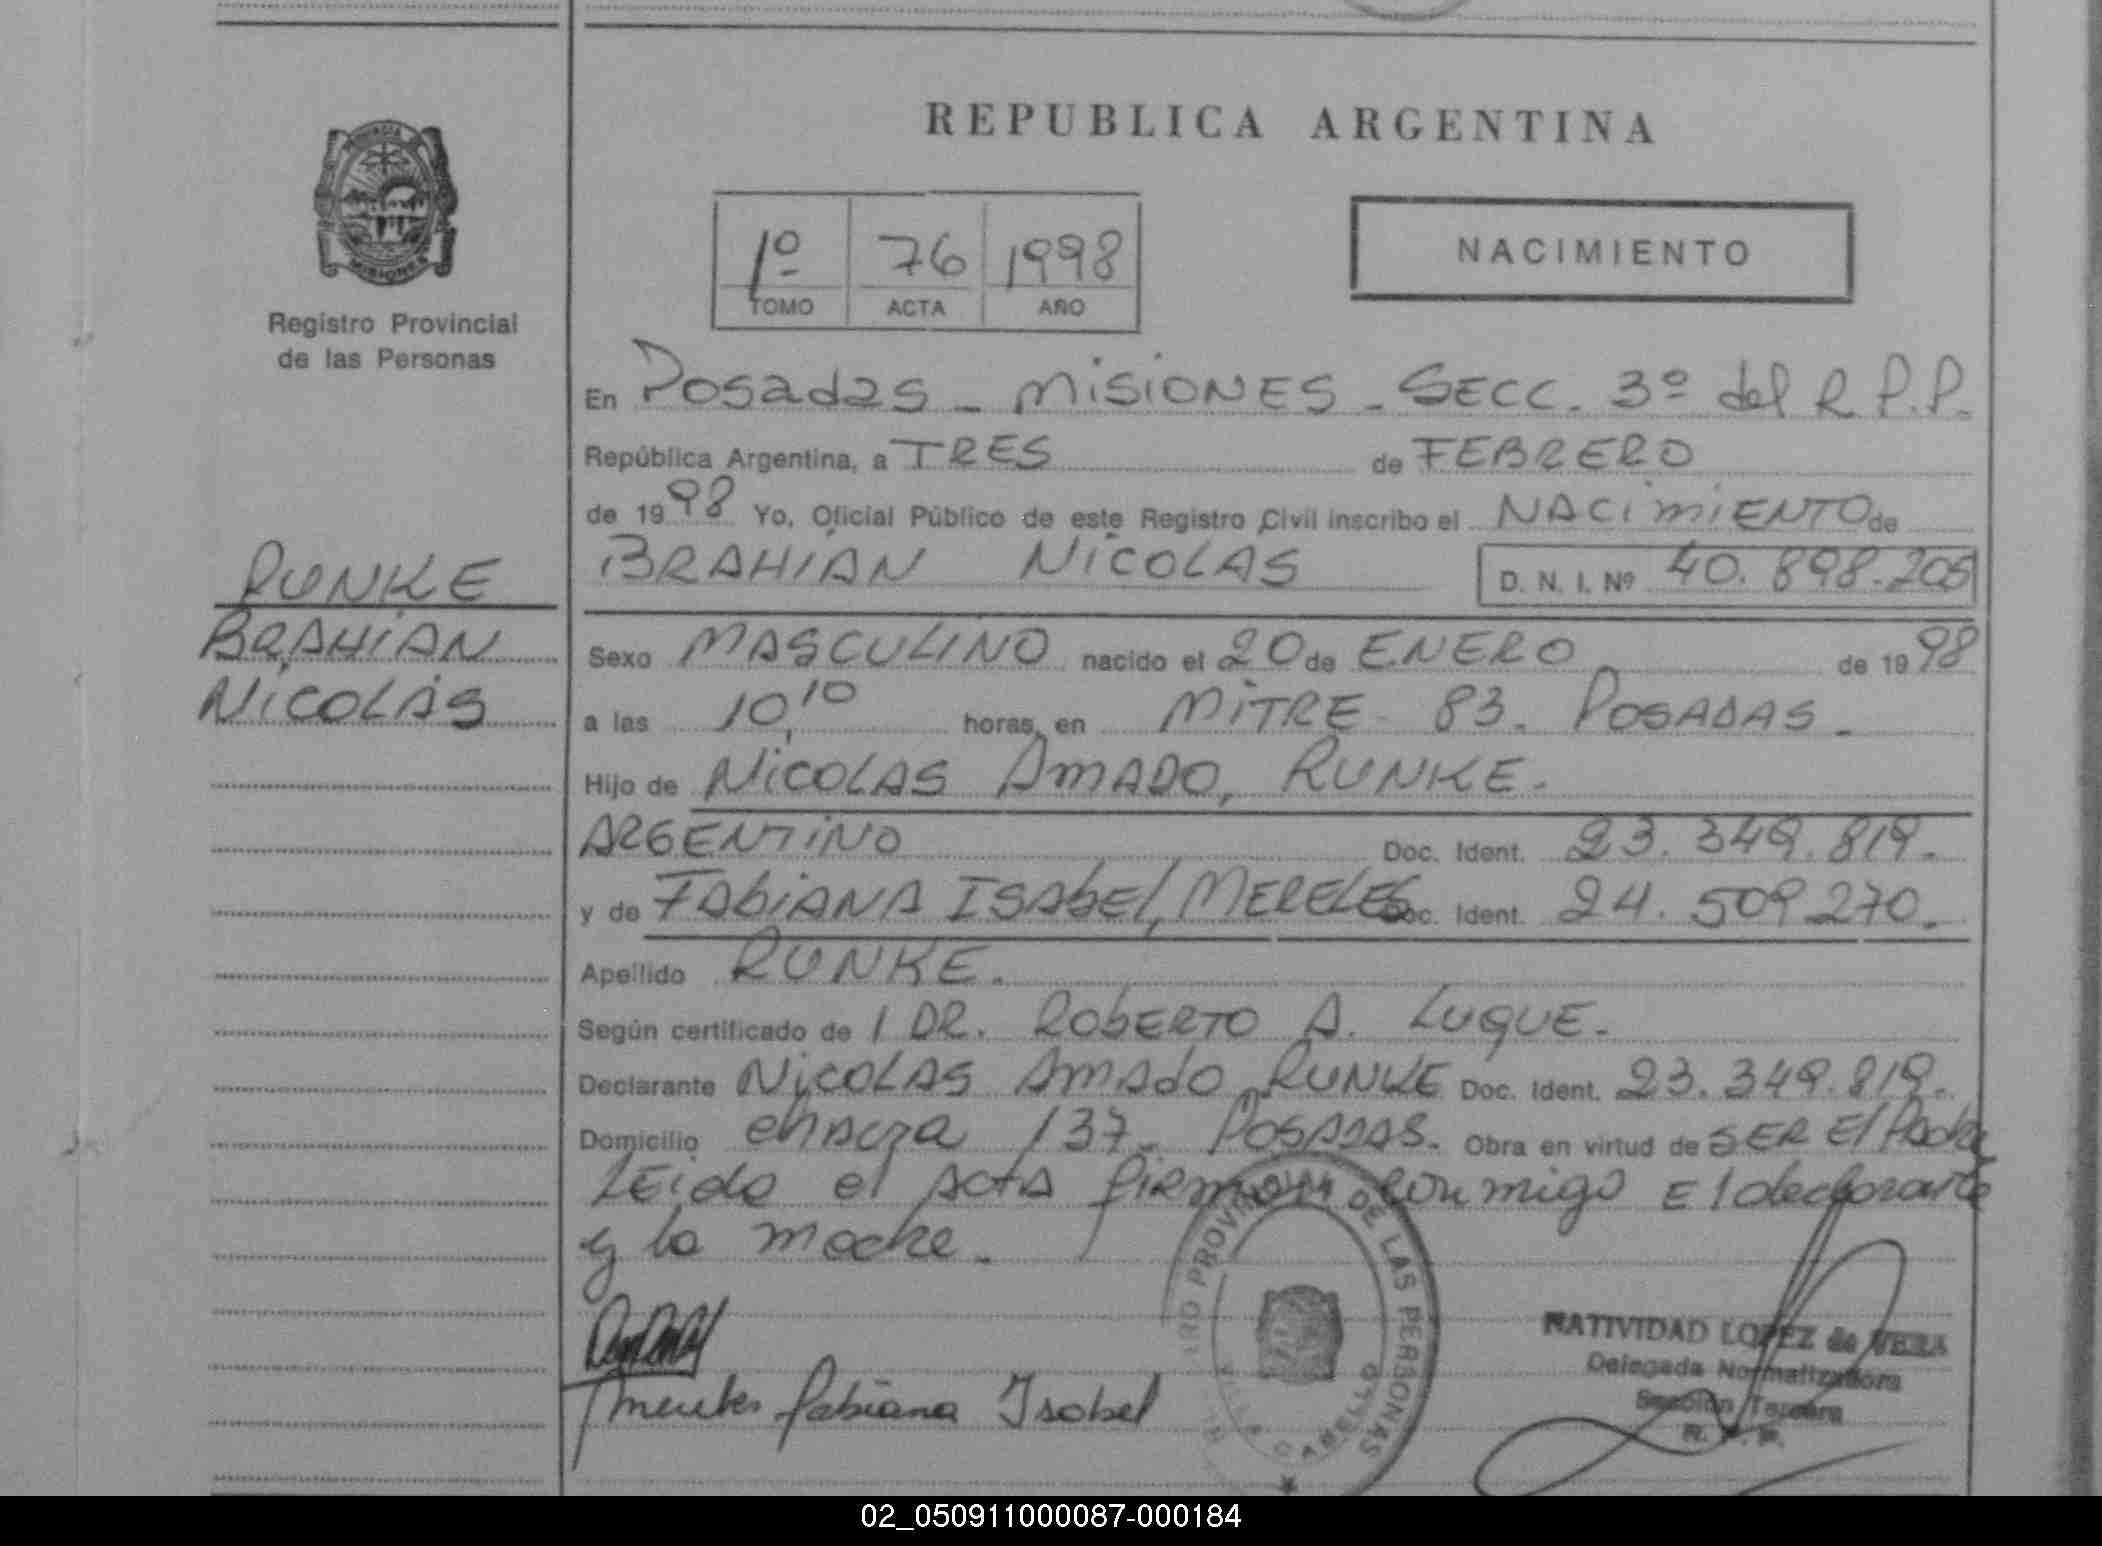 REPUBLICA ARGENTINA
PROVINCIA
MISIONES
Registro Provincial
de las Personas
1º 76 1998
TOMO ACTA AÑO
NACIMIENTO
En Posadas - MISIONES - SECC. 3º del R.P.P.
República Argentina, a TRES de FEBRERO
de 1998 Yo, Oficial Público de este Registro Civil inscribo el NACIMIENTO de
BRAHIAN NICOLAS D. N. I. Nº 40.898.205
RUNKE
BRAHIAN
NICOLAS
Sexo MASCULINO nacido el 20 de ENERO de 1998
a las 10,10 horas, en MITRE 83. POSADAS -
Hijo de NICOLAS AMADO, RUNKE.
ARGENTINO Doc. Ident. 23.349.819.
y de FABIANA ISABEL, MERELES Doc. Ident. 24.509.270.
Apellido RUNKE.
Según certificado de / DR. ROBERTO A. LUQUE.
Declarante NICOLAS AMADO RUNKE Doc. Ident. 23.349.819.
Domicilio chacra 137 - POSADAS. Obra en virtud de SER El Padre
Leida el acta firman conmigo El declarante
y la madre.
Fabiana Isabel
PROVINCIAL DE LAS PERSONAS
CABELLO
NATIVIDAD LOPEZ de VERA
Delegada Normalizadora
Sección Tercera
R. P. P.
02_050911000087-000184